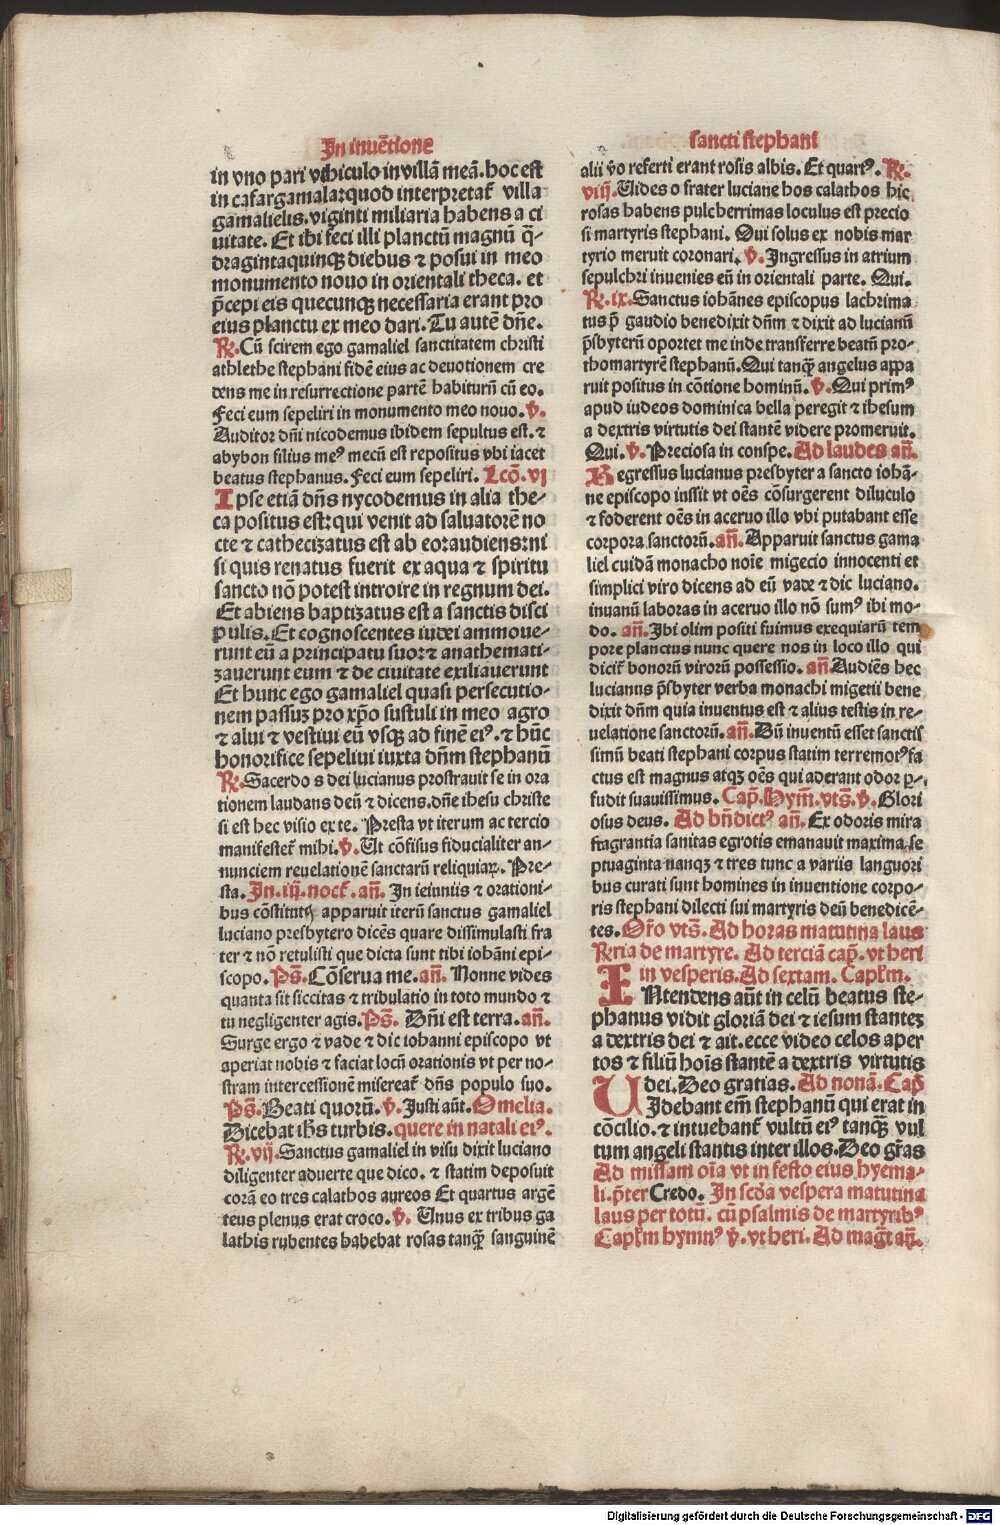 In inuētione
in vno pari vihiculo in villā meā. hoc est
in cafargamala: quod interpretat̄ villa
gamalielis. viginti miliaria habens a ci
uitate. Et ibi feci illi planctū magnū q̄-
dragintaquinqꝫ diebus ⁊ posui in meo
monumento nouo in orientali theca. et
p̄cepi eis quecunqꝫ necessaria erant pro
eius planctu ex meo dari. Tu autē dn̄e.
R̷. Cū scirem ego gamaliel sanctitatem christi
athlethe stephani fidē eius ac deuotionem cre
dens me in resurrectione partē habiturū cū eo.
Feci eum sepeliri in monumento meo nouo. v̄.
Auditor dn̄i nicodemus ibidem sepultus est. ⁊
abybon filius meꝰ mecū est repositus vbi iacet
beatus stephanus. Feci eum sepeliri. Lcō. vj
Ipse etiā dn̄s nycodemus in alia the-
ca positus est: qui venit ad saluatorē no
cte ⁊ cathecizatus est ab eo: audiens: ni
si quis renatus fuerit ex aqua ⁊ spiritu
sancto nō potest introire in regnum dei.
Et abiens baptizatus est a sanctis disci
pulis. Et cognoscentes iudei ammoue-
runt eū a principatu suoꝝ ⁊ anathemati-
zauerunt eum ⁊ de ciuitate exiliauerunt
Et hunc ego gamaliel quasi persecutio-
nem passuꝫ pro xp̄o sustuli in meo agro
⁊ alui ⁊ vestiui eū vsqꝫ ad finē eiꝰ. ⁊ hūc
honorifice sepeliui iuxta dn̄m stephanū
R̷. Sacerdo s dei lucianus prostrauit se in ora
tionem laudans deū ⁊ dicens. dn̄e ihesu christe
si est hec visio ex te. Presta vt iterum ac tercio
manifestet̄ mihi. v̄. Ut cōfisus fiducialiter an-
nunciem reuelationē sanctarū reliquiaꝝ. Pre-
sta. In. iij. noct̄. an̄. In ieiuniis ⁊ orationi-
bus cōstitutꝭ apparuit iterū sanctus gamaliel
luciano presbytero dicēs quare dissimulasti fra
ter ⁊ nō retulisti que dicta sunt tibi iohāni epi-
scopo. Ps̄. Cōserua me. an̄. Nonne vides
quanta sit siccitas ⁊ tribulatio in toto mundo ⁊
tu negligenter agis. Ps̄. Dn̄i est terra. an̄.
Surge ergo ⁊ vade ⁊ dic iohanni episcopo vt
aperiat nobis ⁊ faciat locū orationis vt per no-
stram intercessionē misereat̄ dn̄s populo suo.
Ps̄. Beati quorū. v̄. Justi aūt. Omelia.
Dicebat ihs̄ turbis. quere in natali eiꝰ.
R̷. vij. Sanctus gamaliel in visu dixit luciano
diligenter aduerte que dico. ⁊ statim deposuit
corā eo tres calathos aureos Et quartus argē
teus plenus erat croco. v̄. Unus ex tribus ga
lathis rubentes habebat rosas tanqꝫ̄ sanguinē
sancti stephani
alii v̄o referti erant rosis albis. Et quartꝰ. R̷.
viij. Uides o frater luciane hos calathos hic
rosas habens pulcherrimas loculus est precio
si martyris stephani. Qui solus ex nobis mar
tyrio meruit coronari. v̄. Ingressus in atrium
sepulchri inuenies eū in orientali parte. Qui.
R̷. ix. Sanctus iohānes episcopus lachrima
tus p̄ gaudio benedixit dn̄m ⁊ dixit ad lucianū
p̄sbyterū oportet me inde transferre beatū pro-
thomartyrē stephanū. Qui tanqꝫ̄ angelus appa
ruit positus in cōtione hominū. v̄. Qui primꝰ
apud iudeos dominica bella peregit ⁊ ihesum
a dextris virtutis dei stantē videre promeruit.
Qui. v̄. Preciosa in conspe. Ad laudes an̄.
Regressus lucianus presbyter a sancto iohā-
ne episcopo iussit vt oēs cōsurgerent diluculo
⁊ foderent oēs in aceruo illo vbi putabant esse
corpora sanctorū. an̄. Apparuit sanctus gama
liel cuidā monacho noīe migecio innocenti et
simplici viro dicens ad eū vade ⁊ dic luciano.
inuanū laboras in aceruo illo nō sumꝰ ibi mo-
do. an̄. Ibi olim positi fuimus exequiarū tem
pore planctus nunc quere nos in loco illo qui
dicit̄ bonorū virorū possessio. an̄ Audiēs hec
lucianus p̄sbyter verba monachi migetii bene
dixit dn̄m quia inuentus est ⁊ alius testis in re-
uelatione sanctorū. an̄. Dū inuentū esset sanctis
simū beati stephani corpus statim terremotꝰ fa
ctus est magnus atqꝫ oēs qui aderant odor ꝑ-
fudit suauissimus. Cap̄. Hym̄. vts̄. v̄. Glori
osus deus. Ad bn̄dictꝰ an̄. Ex odoris mira
fragrantia sanitas egrotis emanauit maxima. se
ptuaginta nanqꝫ ⁊ tres tunc a variis languori
bus curati sunt homines in inuentione corpo-
ris stephani dilecti sui martyris deū benedicē-
tes. Or̄o vts̄. Ad horas matutina laus
R̷ria de martyre. Ad terciā cap̄. vt heri
in vesperis. Ad sextam. Capl̄m.
INtendens aūt in celū beatus ste-
phanus vidit gloriā dei ⁊ iesum stanteꝫ
a dextris dei ⁊ ait. ecce video celos aper
tos ⁊ filiū hoīs stantē a dextris virtutis
dei. Deo gratias. Ad nonā. Cap̄
UIdebant em̄ stephanū qui erat in
cōcilio. ⁊ intuebant̄ vultū eiꝰ tanqꝫ̄ vul
tum angeli stantis inter illos. Deo gr̄as
Ad missam oīa vt in festo eius hyema-
li. p̄ter Credo. In scd̄a vespera matutina
laus per totū. cū psalmis de martyribꝰ
Capl̄m hymnꝰ v̄. vt heri. Ad maḡt an̄.
Digitalisierung gefördert durch die Deutsche Forschungsgemeinschaft - DFG